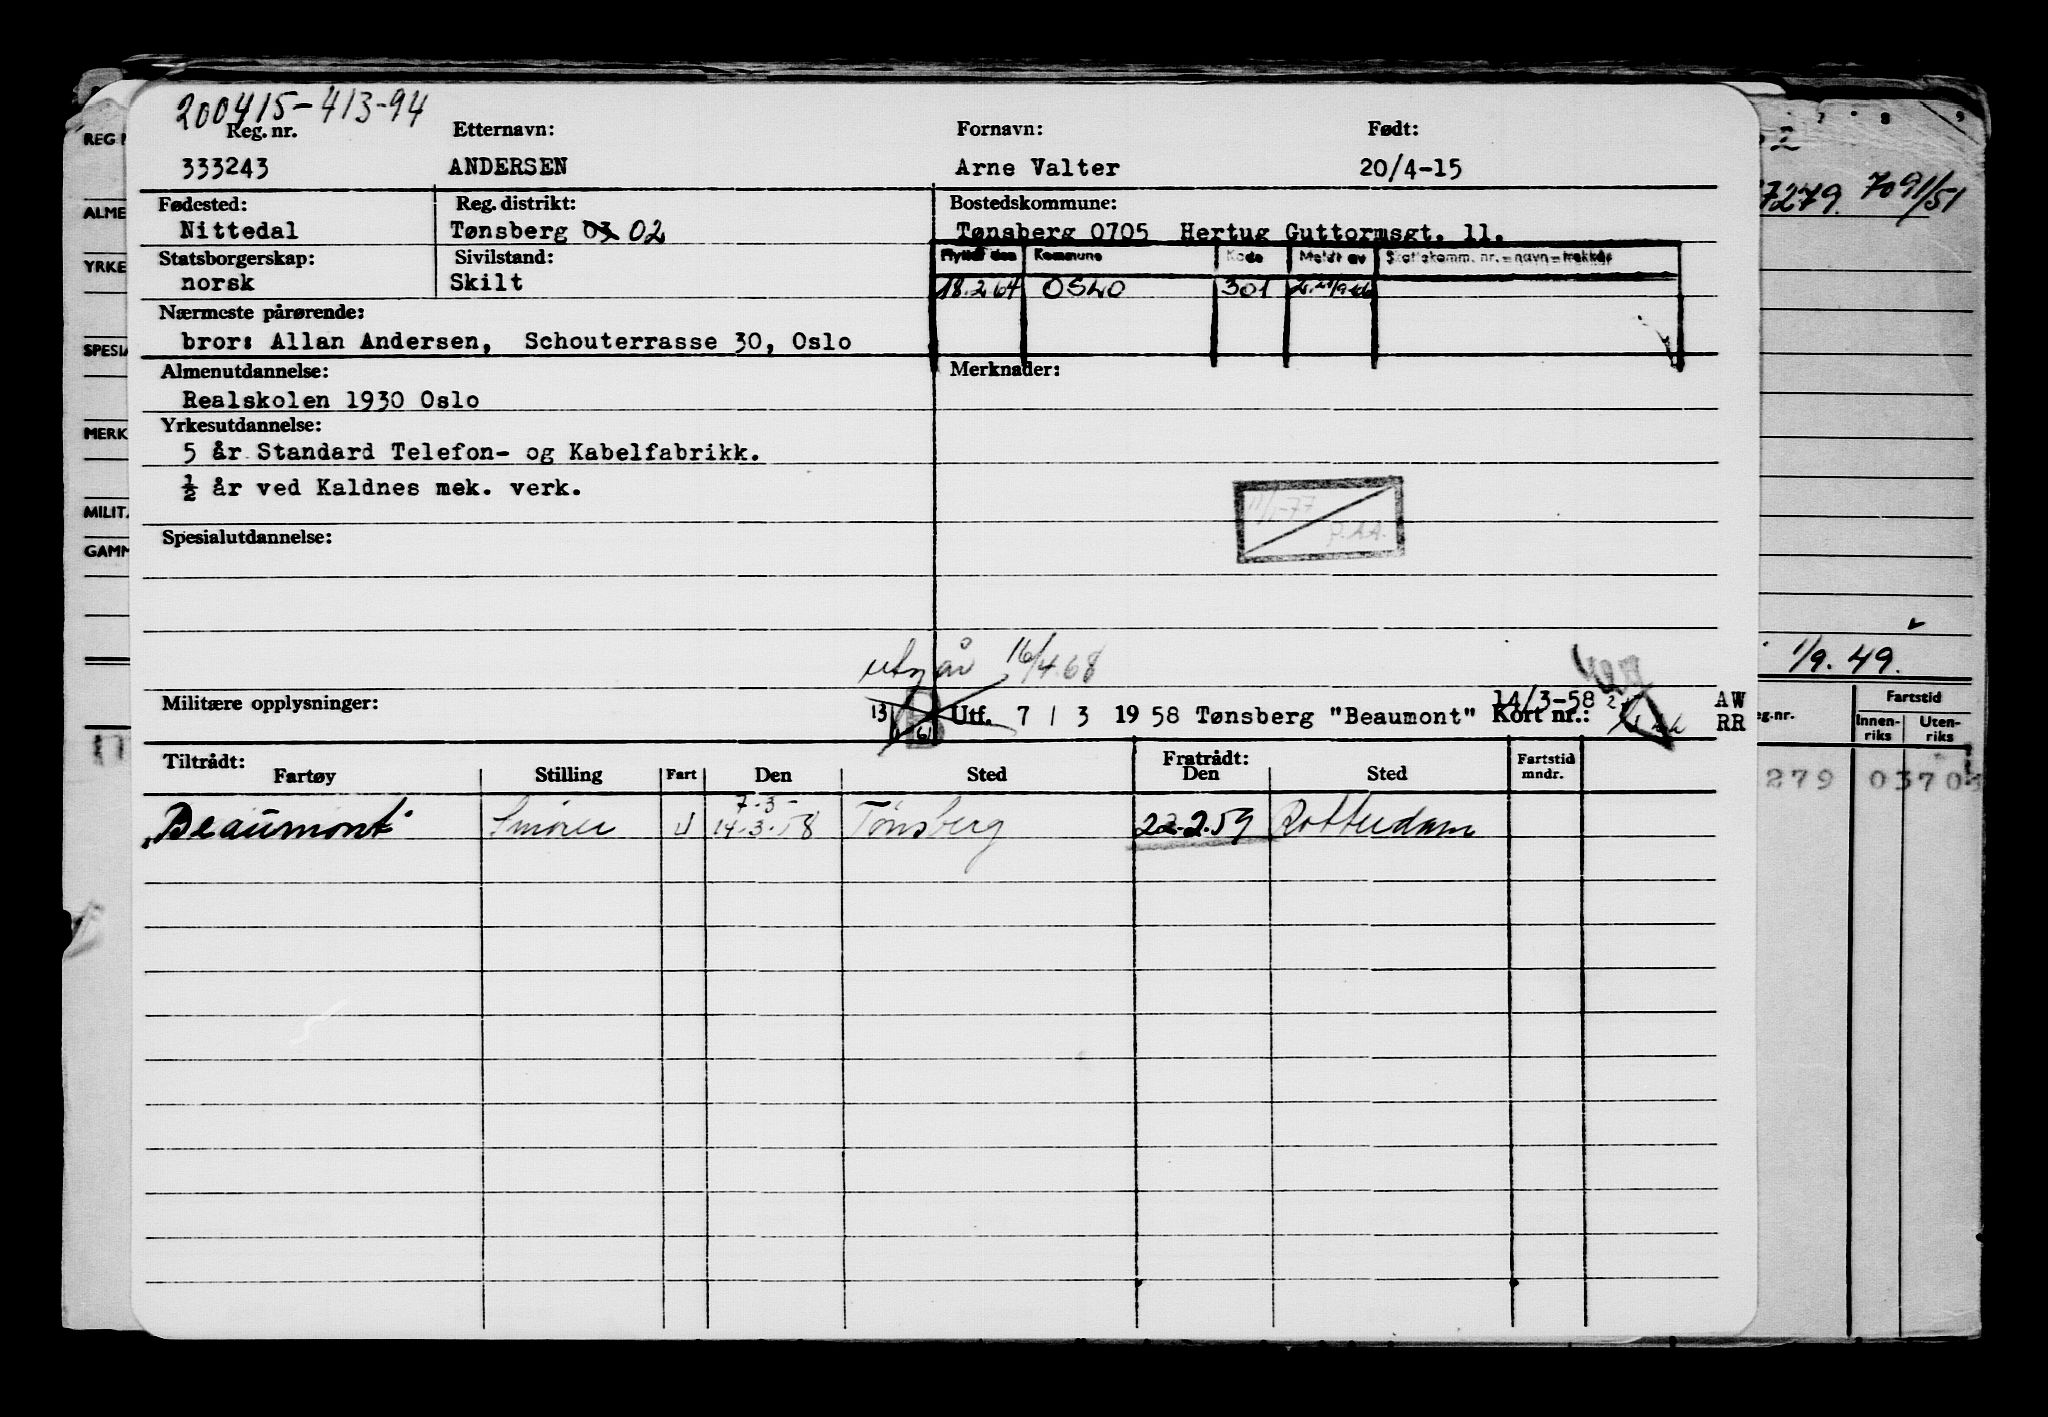 200415-413-94
Reg. nr. Etternavn: Fornavn: Født:
333243 ANDERSEN Arne Valter 20/4-15
Fødested: Reg. distrikt: Bostedskommune:
Nittedal Tønsberg 02 Tønsberg 0705 Hertug Guttormsgt. 11.
Statsborgerskap: Sivilstand:
norsk Skilt
Flyttet den Kommune Kode Meldt av Skattekomm. nr. = navn = trekkår
18.2.64 OSLO 301
Nærmeste pårørende:
bror: Allan Andersen, Schouterrasse 30, Oslo
Almenutdannelse: Merknader:
Realskolen 1930 Oslo
Yrkesutdannelse:
5 år Standard Telefon- og Kabelfabrikk.
½ år ved Kaldnes mek. verk.
11/1-77
P.AA.
Spesialutdannelse:
utgår 16/4.68
Militære opplysninger: 13 61 Utf. 7 / 3 19 58 Tønsberg "Beaumont" 14/3-58 Kort nr.: AW
RR
Tiltrådt: Fratrådt:
Fartøy Stilling Fart Den Sted Den Sted Fartstid mndr.
7.3-
"Beaumont" Smører U 14.3.58 Tønsberg 22.2.59 Rotterdam
REG N
ALME
YRKE
SPESIA
MERK
MILIT.
GAMM
7279. 7091/51
1/9. 49.
eg.nr. Fartstid
Innen-riks Uten-riks
279 0370